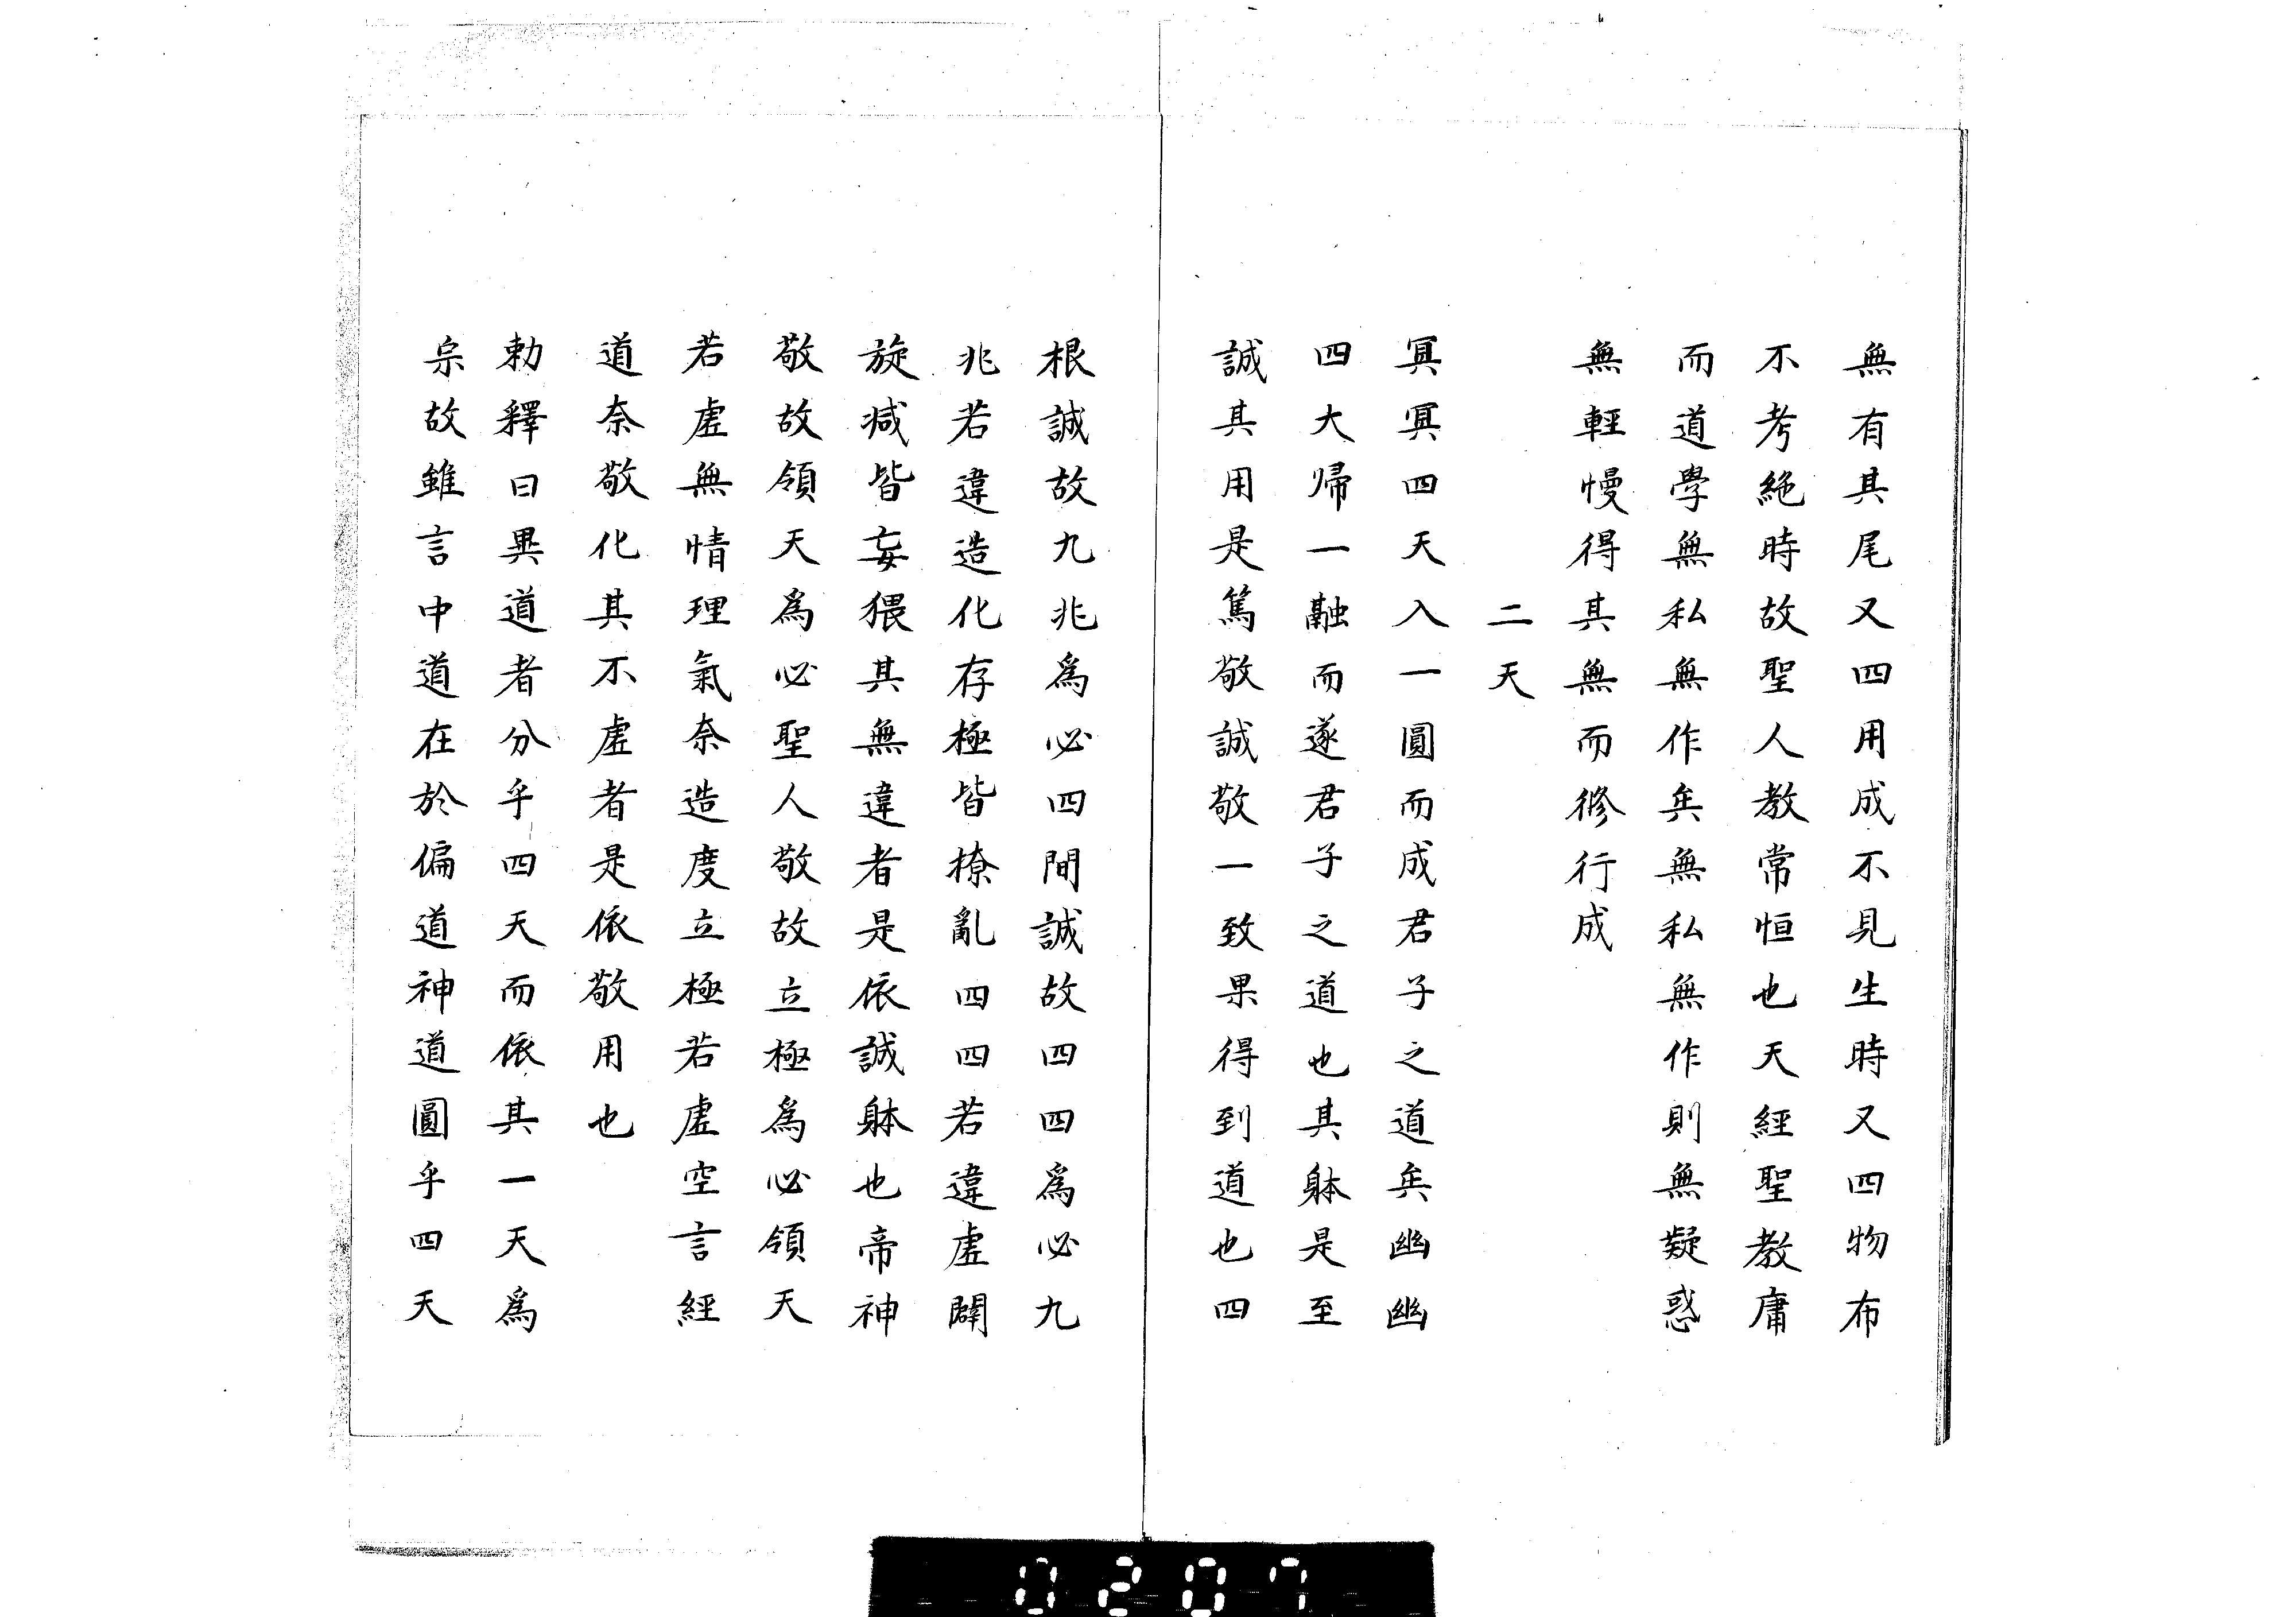 無有其尾又四用成不見生時又四物布
不考絶時故聖人教常恒也天經聖教庸
而道學無私無作矣無私無作則無疑惑
無輕慢得其無而修行成
二天
冥冥四天入一圓而成君子之道矣幽幽
四大帰一融而遂君子之道也其躰是至
誠其用是篤敬誠敬一致果得到道也四
根誠故九兆爲必四間誠故四四爲必九
兆若違造化存極皆撩亂四四若違虚闢
旋減皆妄猥其無違者是依誠躰也帝神
敬故領天爲必聖人敬故立極爲必領天
若虚無情理氣奈造度立極若虚空言經
道奈敬化其不虚者是依敬用也
勅釋曰異道者分乎四天而依其一天爲
宗故雖言中道在於偏道神道圓乎四天
0207